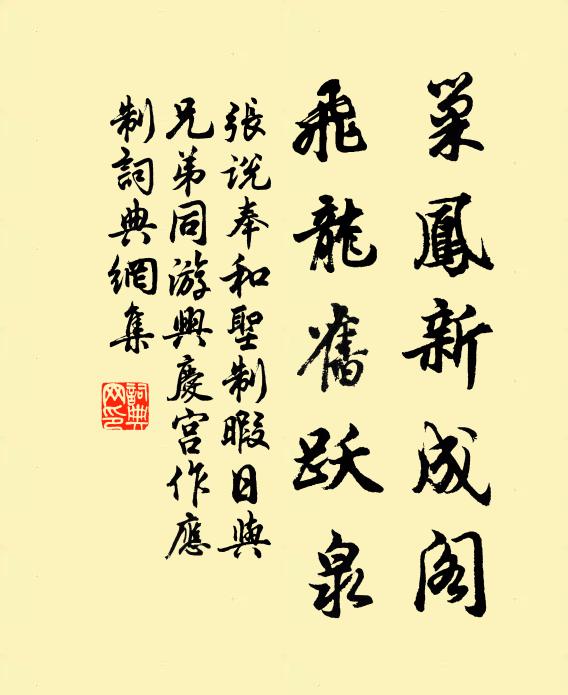 巢鳳新成阁
飛龍舊跃泉
張說奉和聖制暇日與
兄弟同游興慶宫作應
制詞典網集
詞典网印